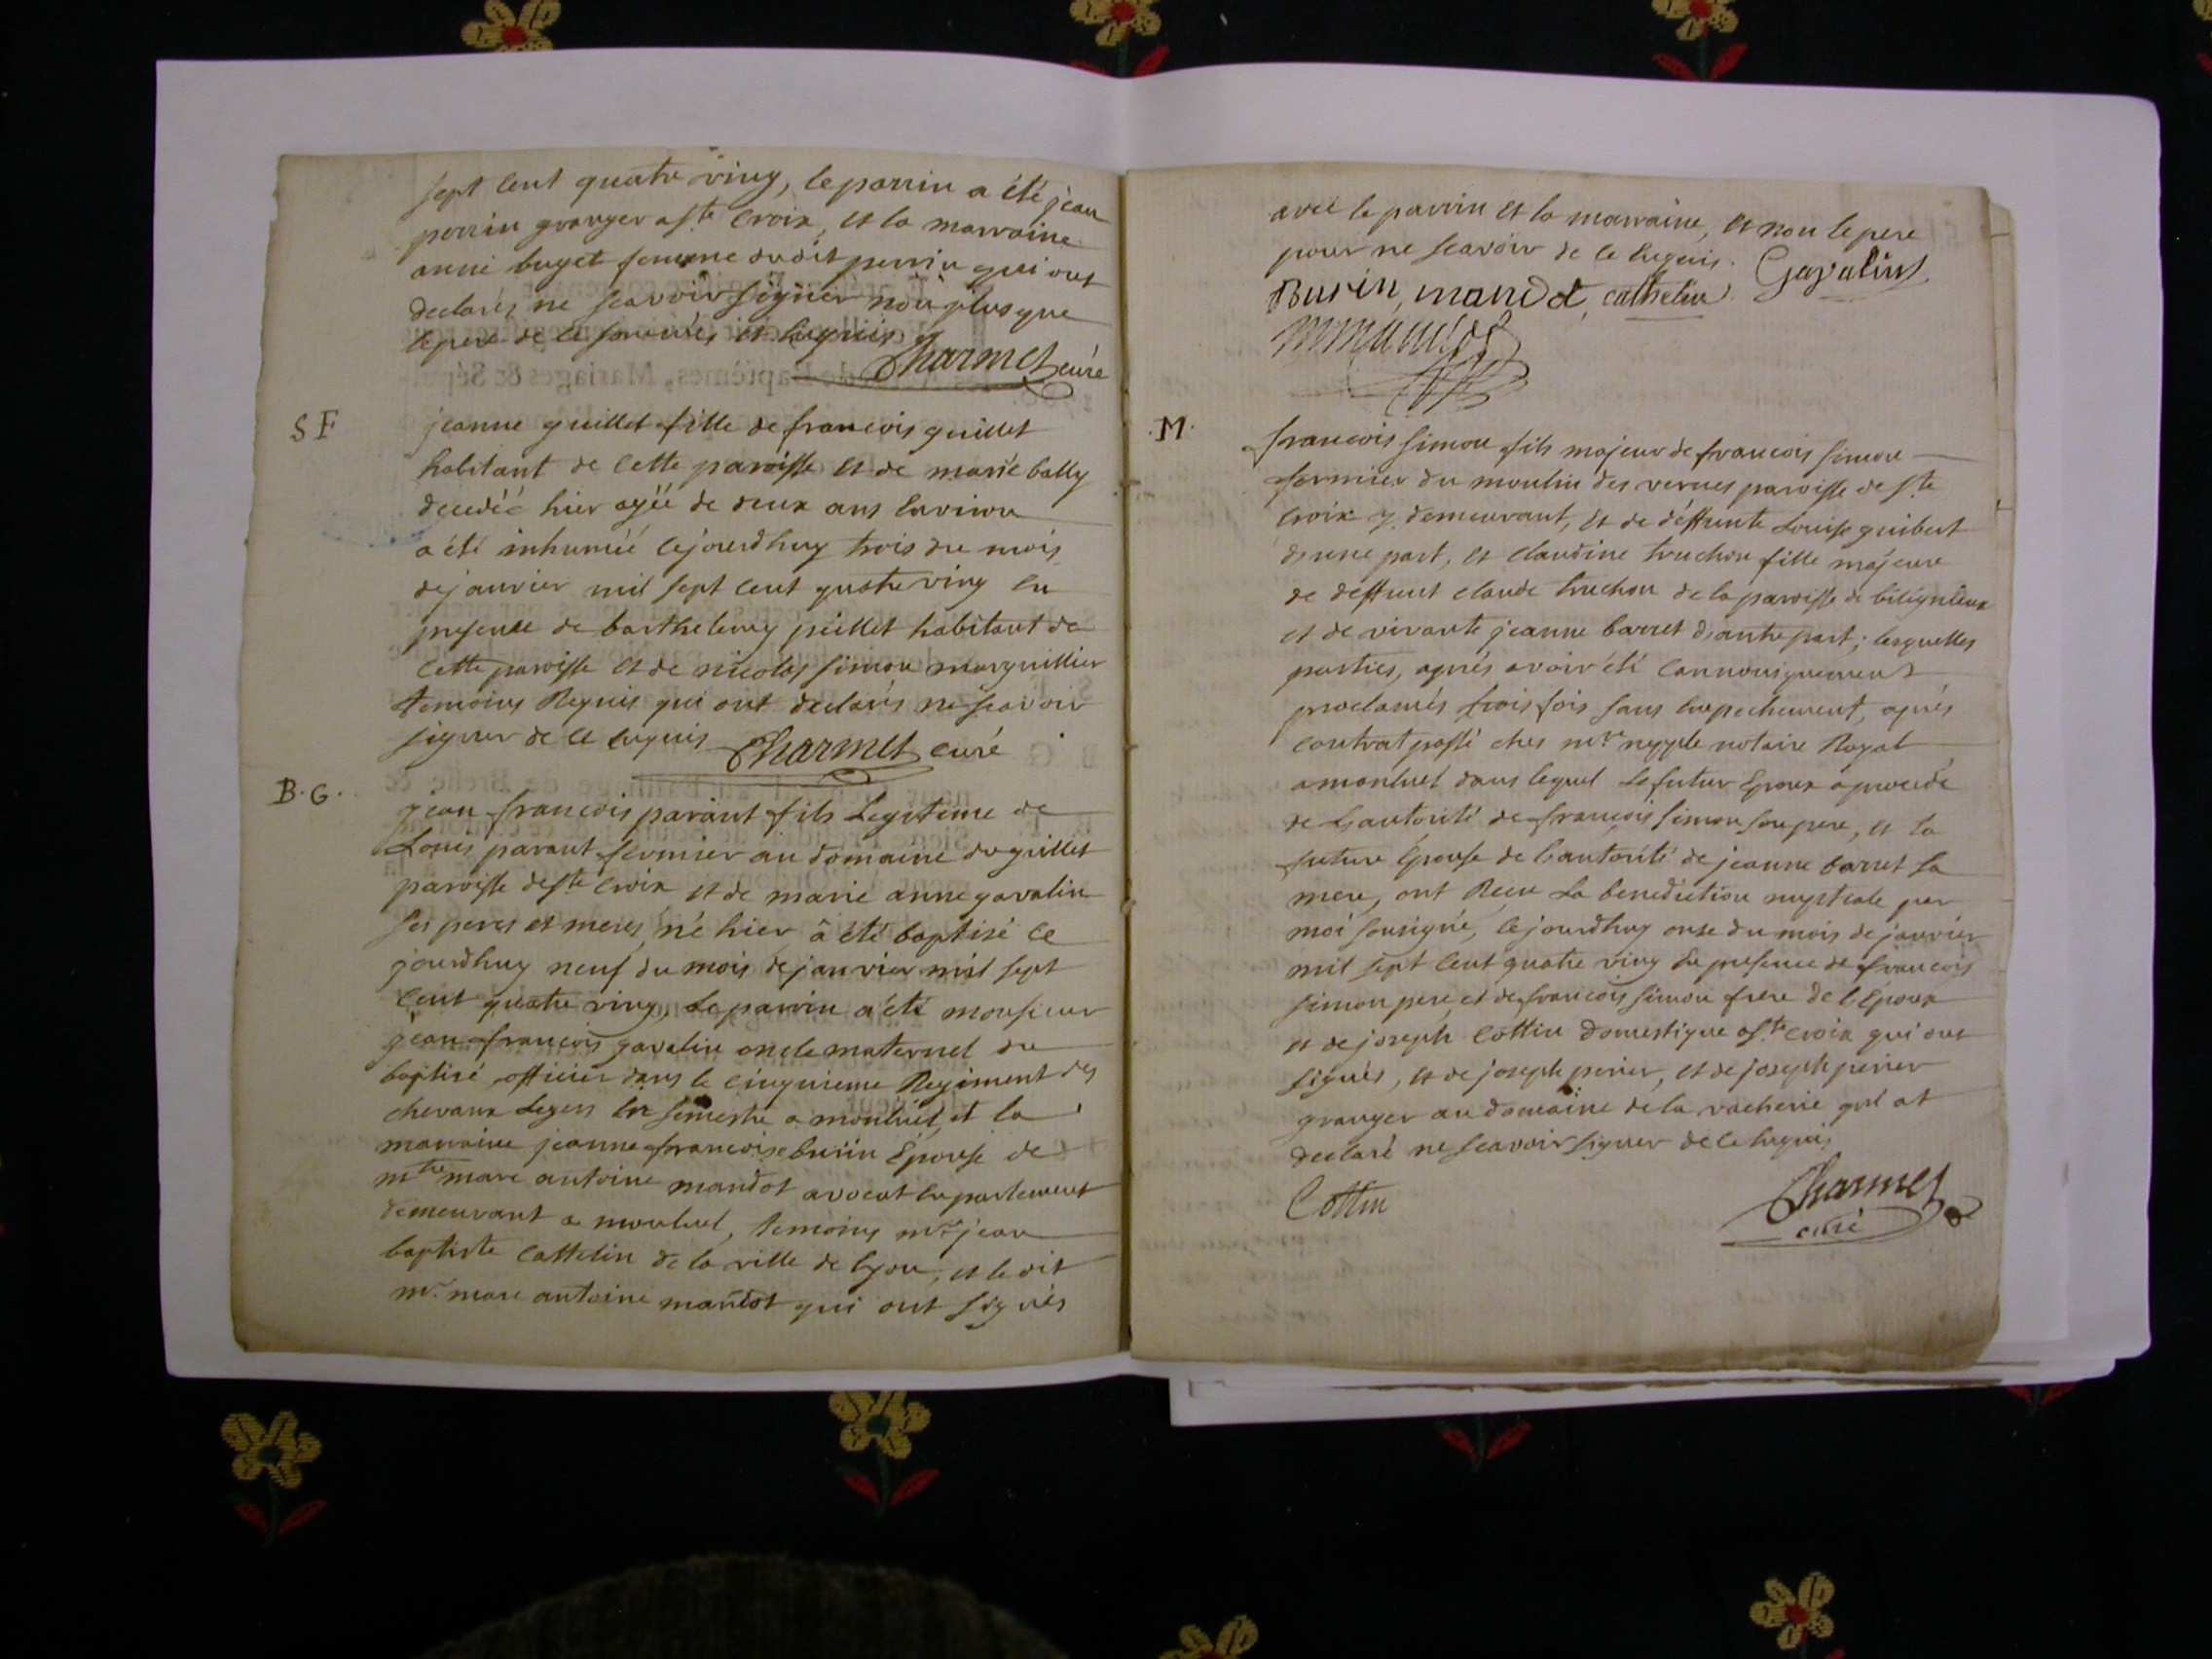 sept cent quatre ving, le parrin a été jean
perrin granger a ste croix, et la marraine
anne buget femme dudit perrin qui ont
declarés ne scavoir signer non plus que
le pere de ce et enquis
Charmet curé
S F
jeanne guillet fille de francois guillet
habitant de cette paroisse et de marie bally
decedéé hier agéé de deux ans environ
a été inhuméé cejourdhuy trois du mois
de janvier mil sept cent quatre ving en
presence de barthelemy peillet habitant de
cette paroisse et de nicolas simon marguillier
temoins Requis qui ont declarés ne scavoir
signer de ce enquis Charmet curé
B. G.
jean francois parant fils Legitime de
Louis parant fermier au domaine du guillet
paroisse de ste croix et de marie anne gavalin
ses peres et meres, né hier â été baptisé ce
jourdhuy neuf du mois de janvier mil sept
cent quatre ving, Le parrin a été monsieur
jean francois gavalin oncle maternel du
baptisé officier dans le cinquieme Regiment des
chevaux Legers en semestre a montluel, et la
marraine jeanne francoise burin Epouse de
mtre marc antoine mandot avocat en parlement
demeurant a montluel, temoins mr jean
baptiste cattelin de la ville de lyon, et le dit
mr. marc antoine mandot qui ont signés
avec le parrin et la marraine, et non le pere
pour ne scavoir de ce Enquis. Gavalin
Burin, mandot, cathelin
M.
francois simon fils majeur de francois simon
fermier du moulin des vernes paroisse de ste
croix y demeurant, et de déffunte Louise guibert
d'une part, et claudine truchon fille majeure
de deffunt claude truchon de la paroisse de béligneux
et de vivante jeanne barret d'autre part; lesquelles
parties, aprés avoir été cannoniquement
proclamés trois fois sans Empechement, aprés
contrat passé ches mre nepple notaire Royal
a montluel dans lequel Le futur Epoux a procédé
de L'autorité de francois simon son pere, et la
future Epouse de l'autorité de jeanne barret sa
mere, ont Recu La benediction nuptiale par
moi sousigné, cejourdhuy onse du mois de janvier
mil sept cent quatre ving En presence de francois
simon pere, et de francois simon frere de l'Epoux
et de joseph cottin domestique a ste croix qui ont
signés, et de joseph perier, et de joseph perier
granger au domaine de la vacherie qui at
declaré ne scavoir signer de ce Enquis
Cottin
Charmet
curé